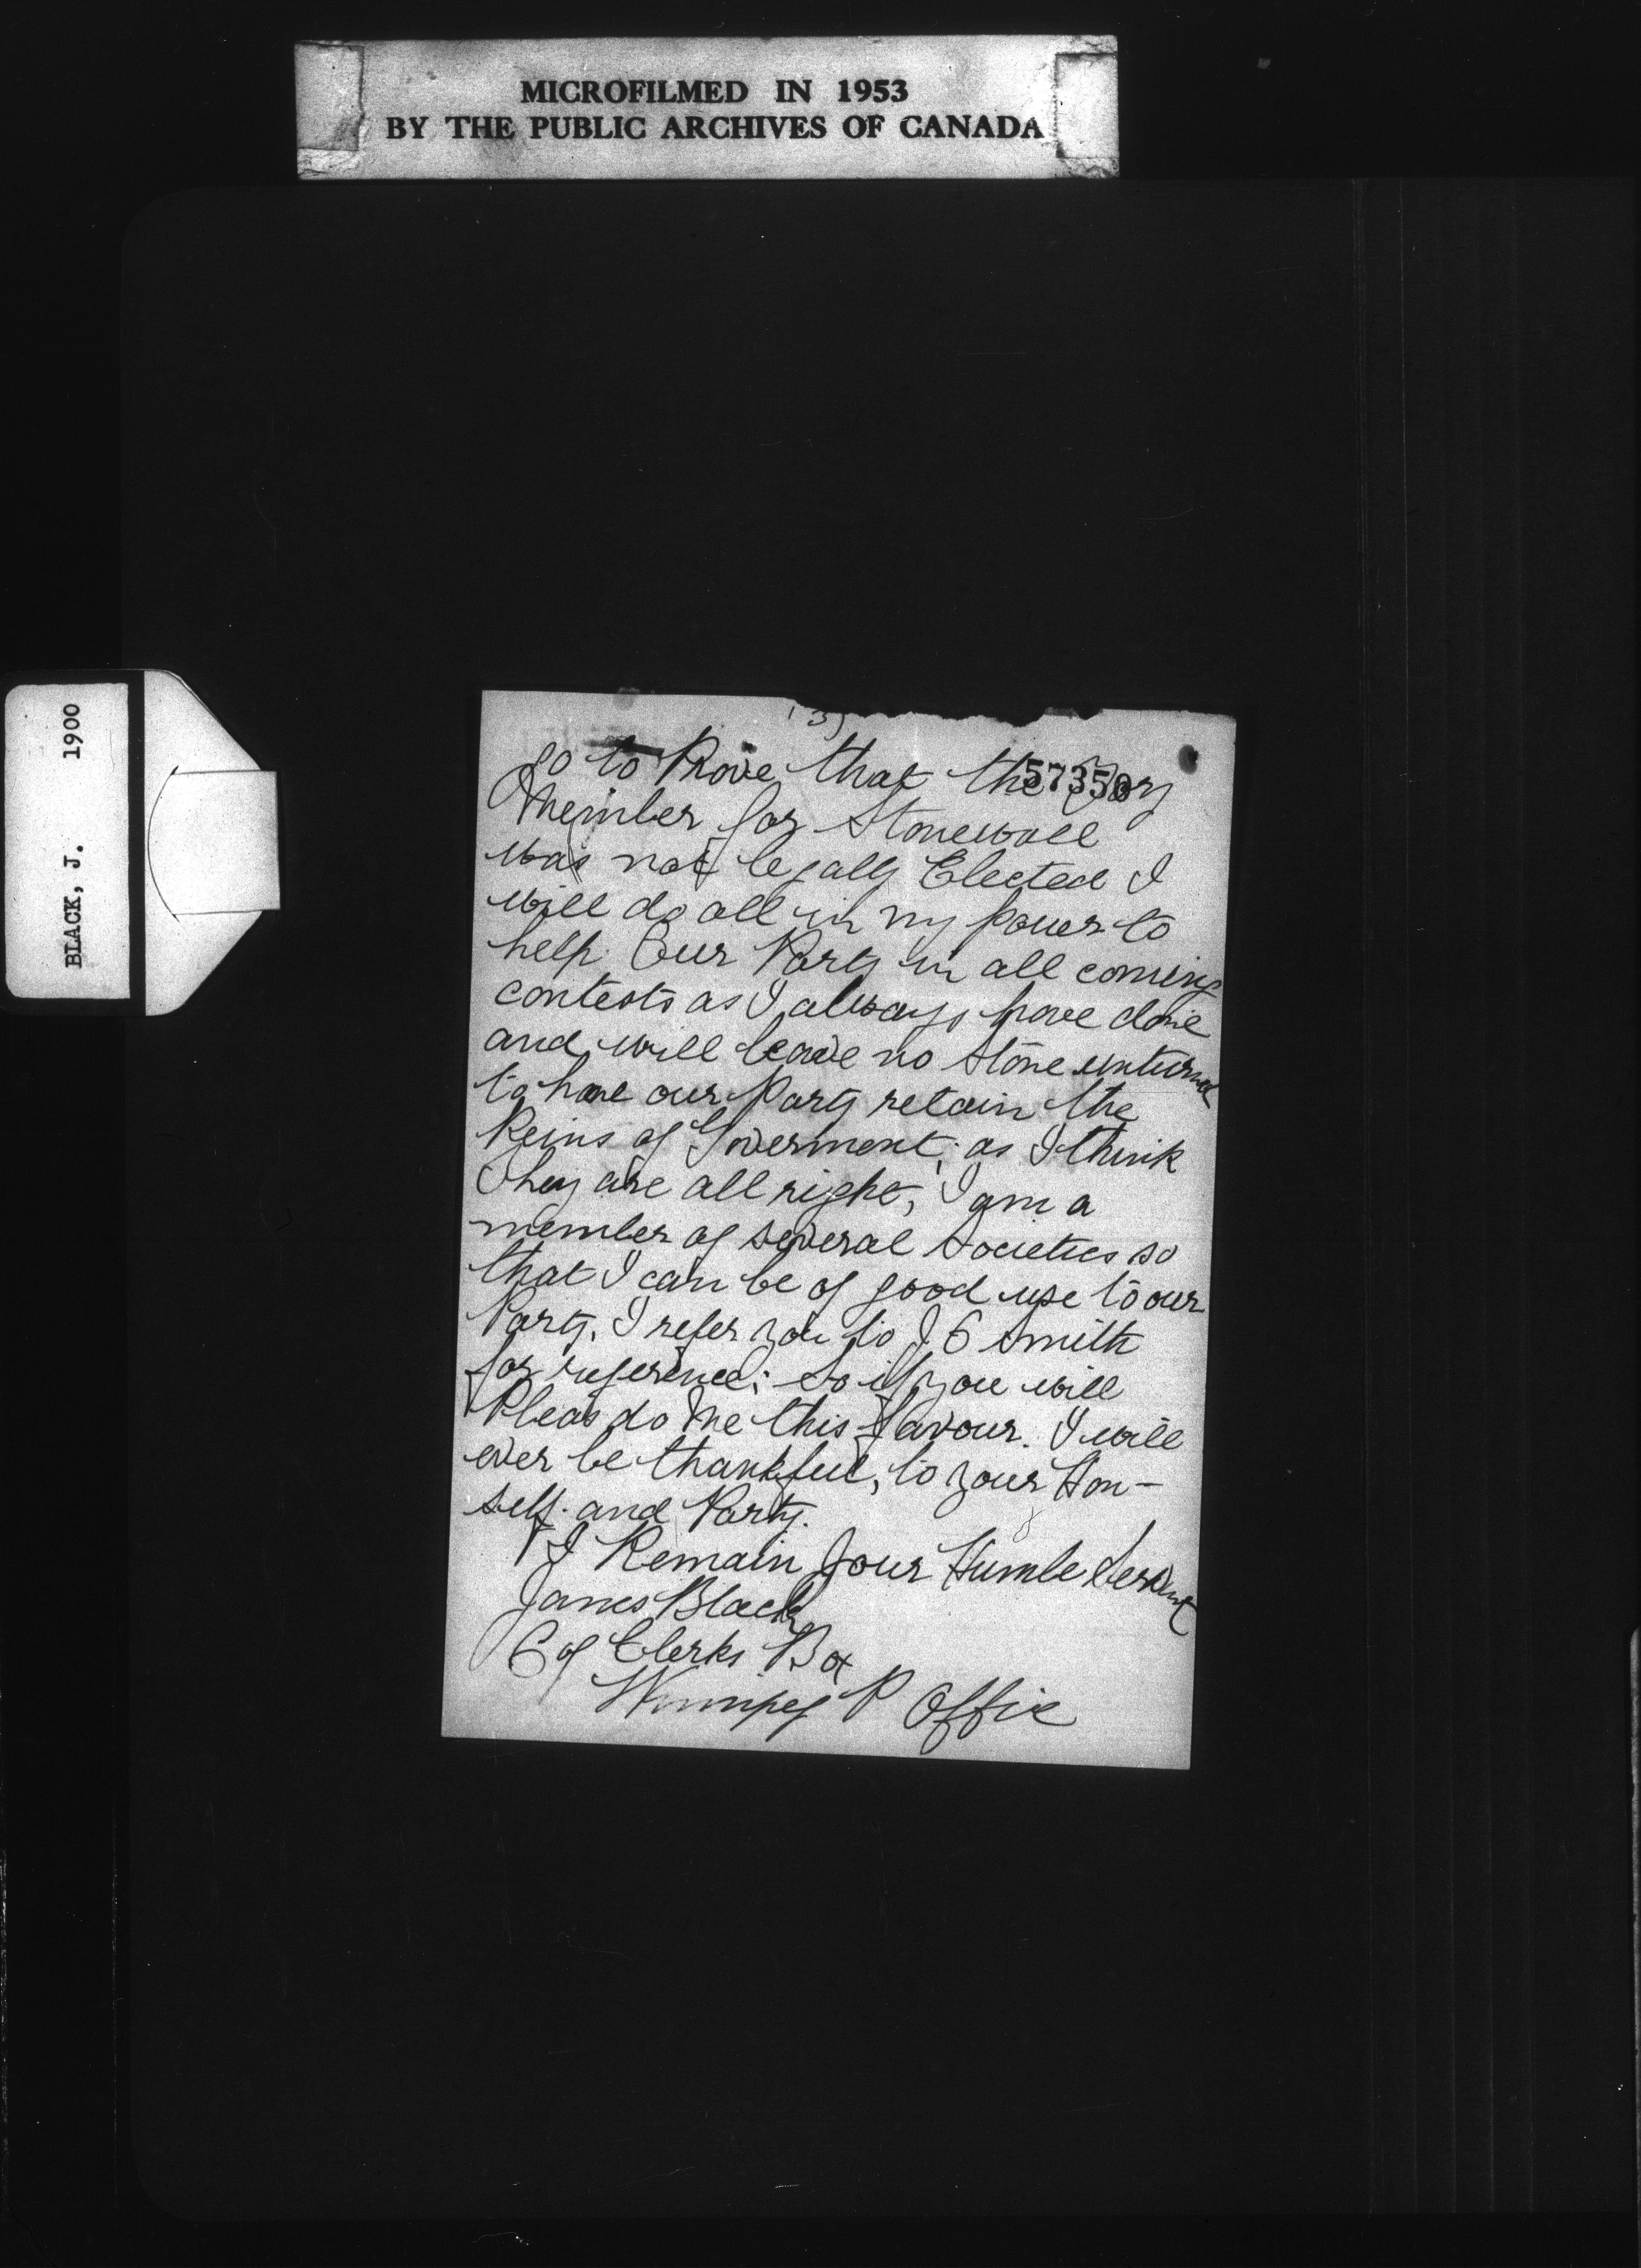 MICROFILMED IN 1953
BY THE PUBLIC ARCHIVES OF CANADA
BLACK, J. 1900
(3)
57350
go to Prove that the Tory
Member for Stonewall
was not legally Elected I
will do all in my power to
help Our Party in all coming
contests as I always have done
and will leave no stone unturned
to have our Party retain the
Reins of Goverment; as I think
They are all right, I am a
member of several Societies so
that I can be of good use to our
Party. I refer you to J G Smith
for reference; so if you will
Pleas do Me this favour. I will
ever be thankful, to your Hon-
self. and Party.
I Remain Your Humble Servant
James Black
C of Clerks Box
Winnipeg P Office